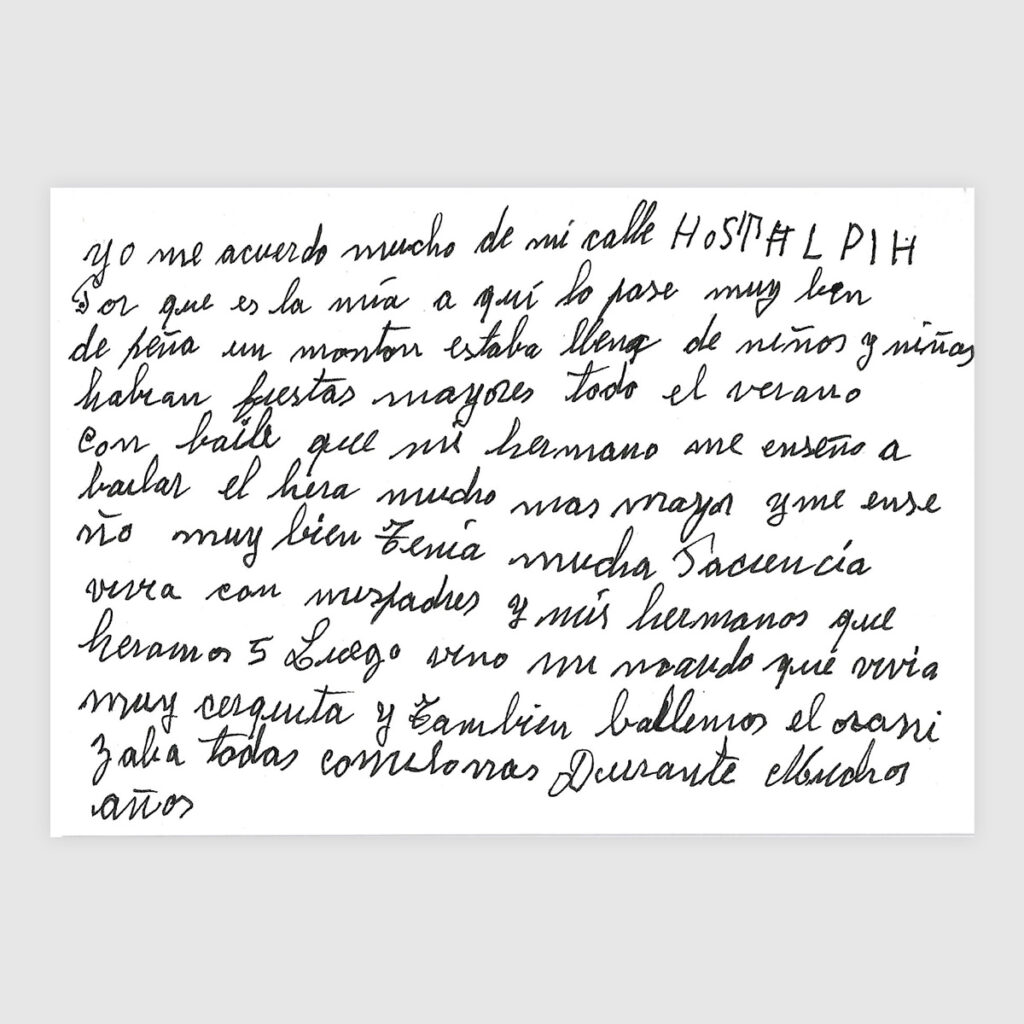 Yo me acuerdo mucho de mi calle HOSTAL PIH
Por que es la mía a quí lo pase muy bien
de peña un monton estaba llena de niños y niñas
habian fiestas mayores todo el verano
con baile que mi hermano me enseño a
bailar el hera mucho mas mayor y me ense
ño muy bien Tenía mucha Paciencía
vivia con mis padres y mis hermanos que
heramos 5 Luego vino mi marido que vivia
muy cerquita y Tambien bailemos el
zaba todas Durante Muchos
años